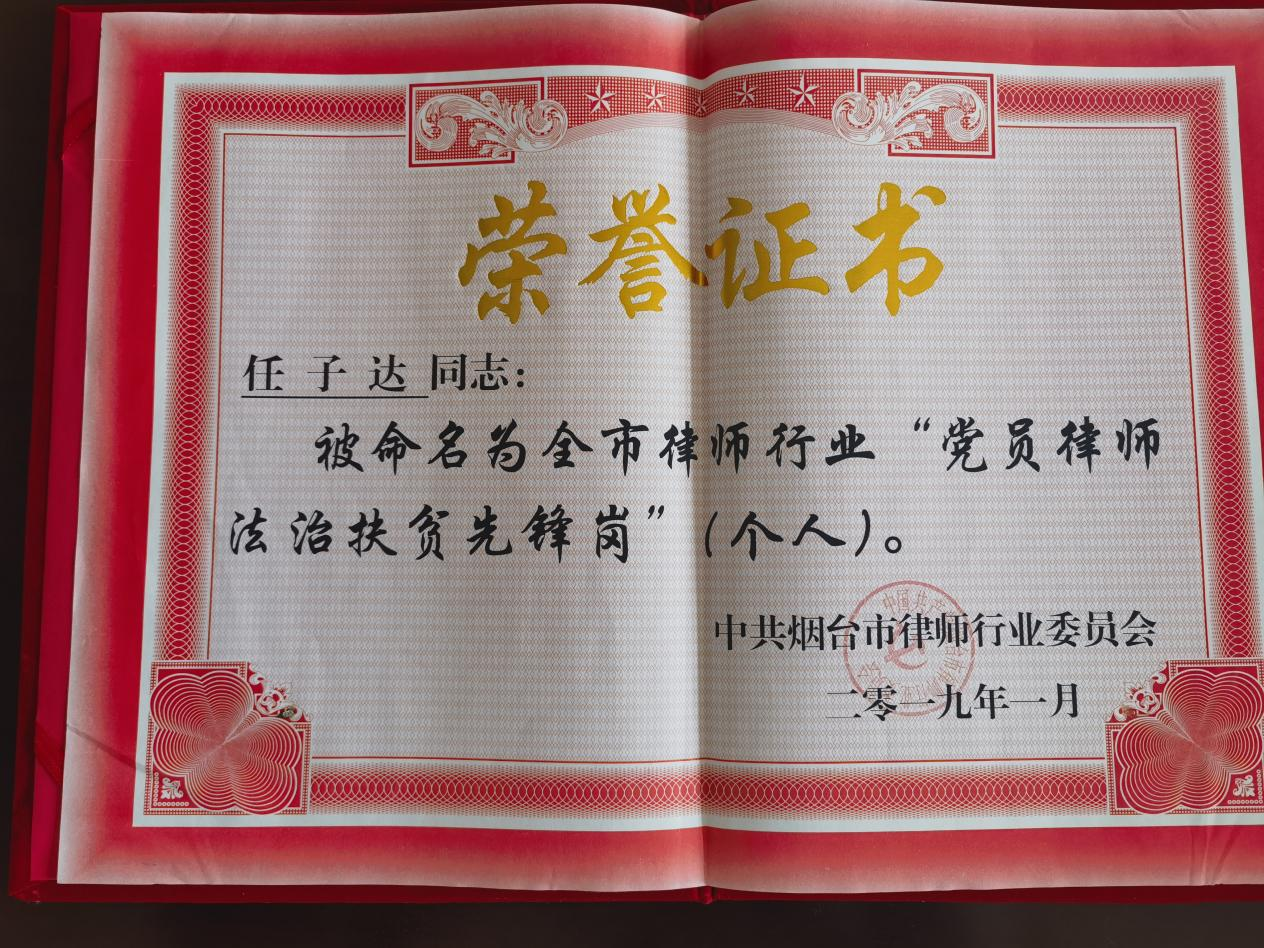 荣誉证书
任子达同志：
被命名为全市律师行业“党员律师
法治扶贫先锋岗”（个人）。
中共烟台市律师行业委员会
二零一九年一月
中国共产